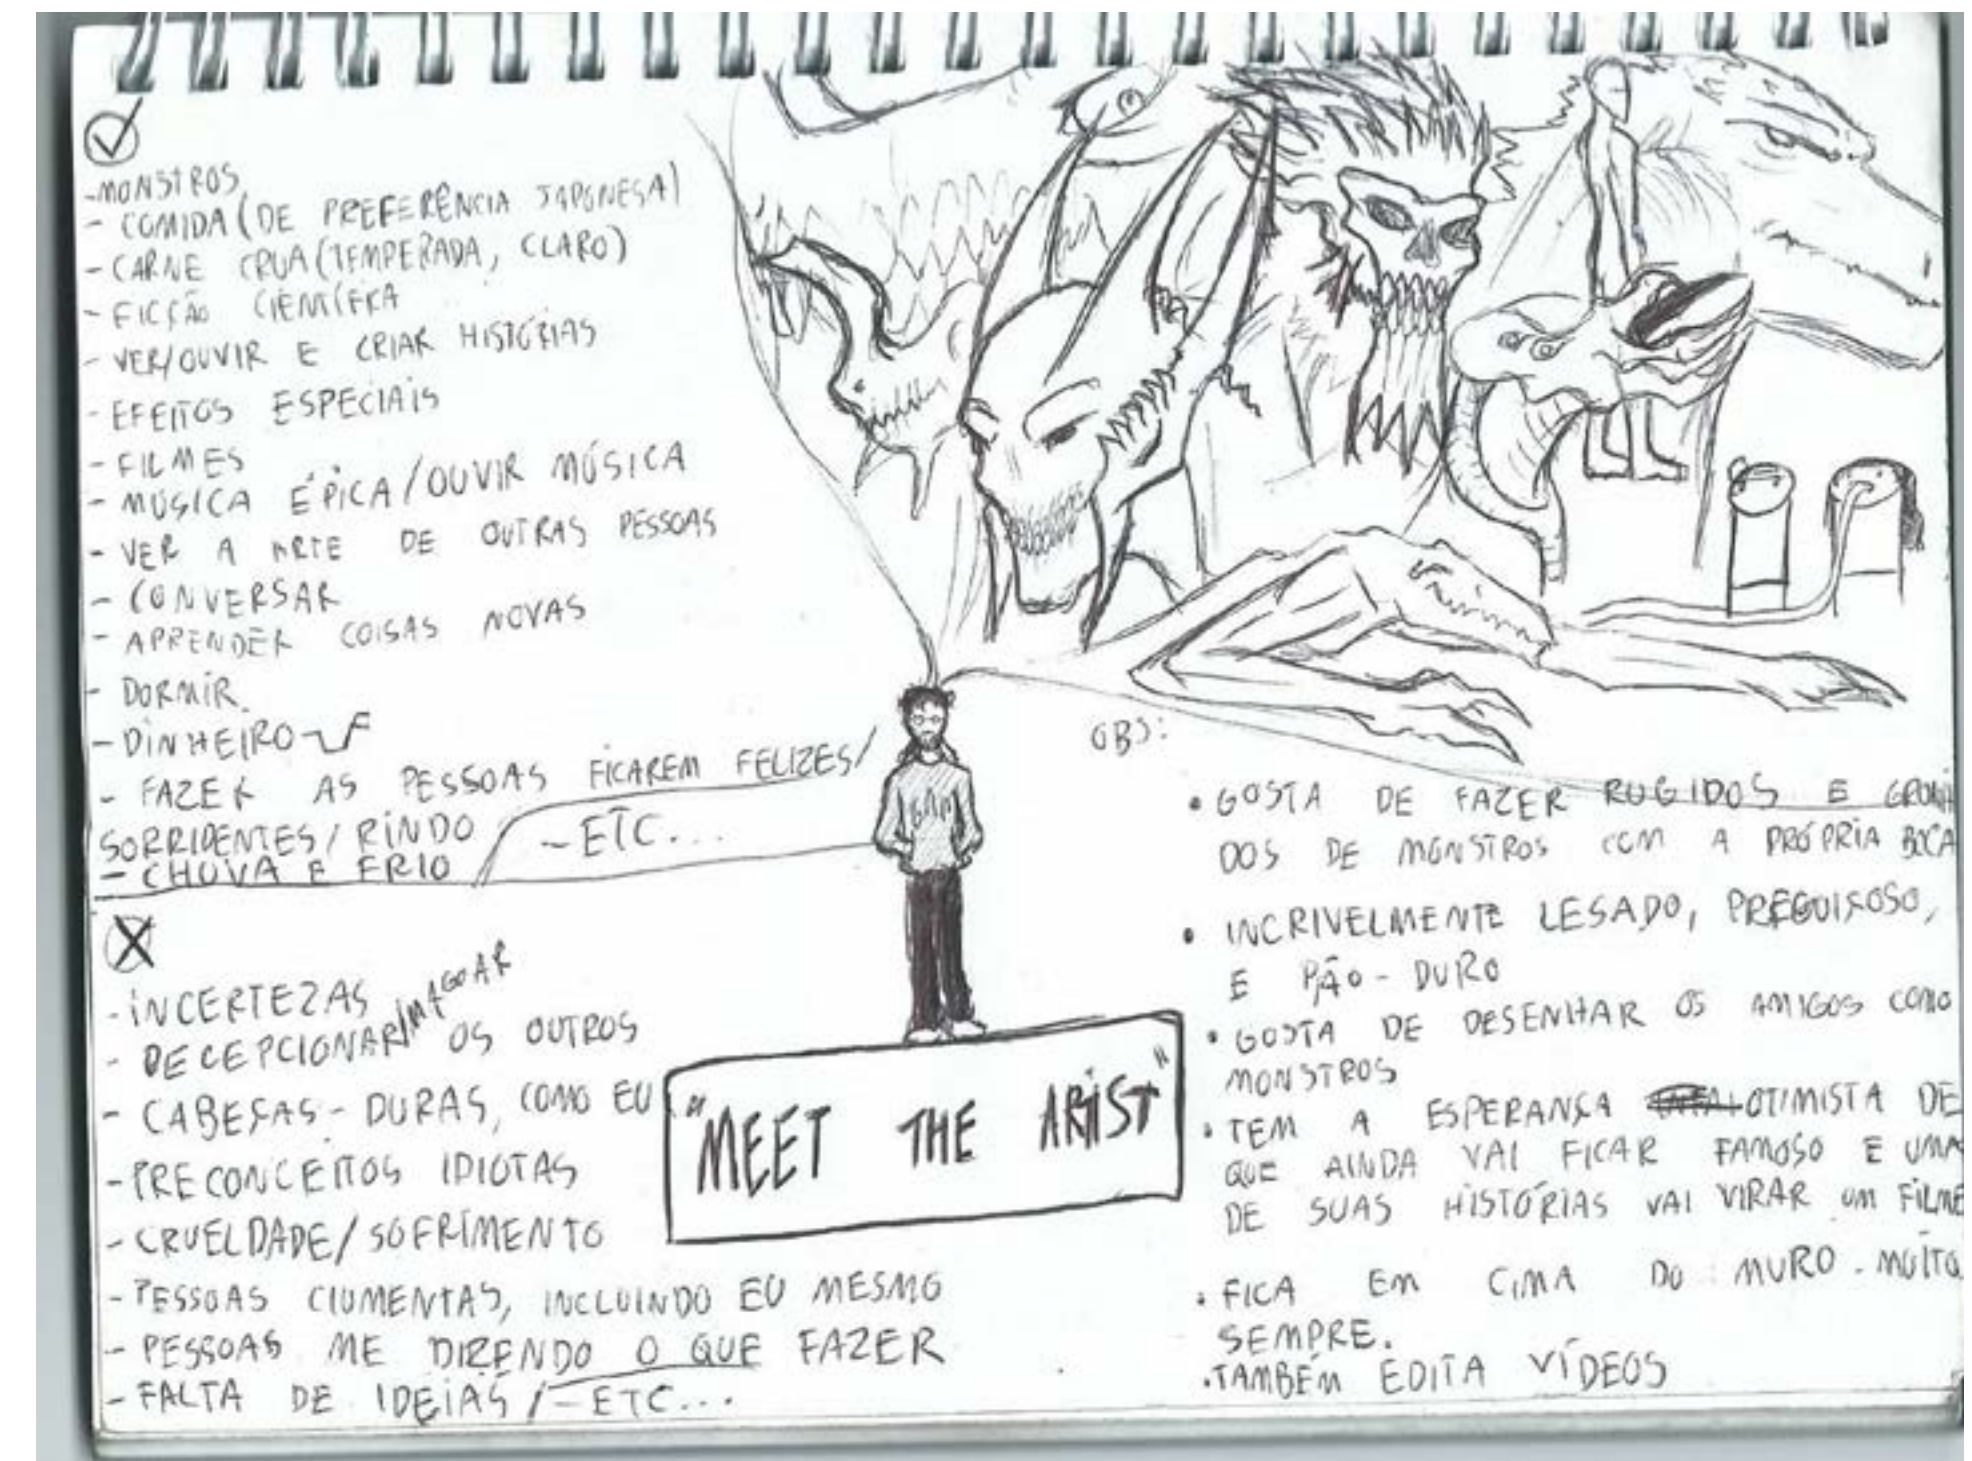 -MONSTROS
- COMIDA (DE PREFERÊNCIA JAPONESA)
- CARNE CRUA (TEMPERADA, CLARO)
- FICÇÃO CIENTÍFICA
- VER/OUVIR E CRIAR HISTÓRIAS
- EFEITOS ESPECIAIS
- FILMES
- MÚSICA ÉPICA/OUVIR MÚSICA
- VER A ARTE DE OUTRAS PESSOAS
- CONVERSAR
- APRENDER COISAS NOVAS
- DORMIR
- DINHEIRO
- FAZER AS PESSOAS FICAREM FELIZES/
SORRIDENTES/RINDO
- CHUVA E FRIO
- ETC...
- INCERTEZAS
- DECEPCIONAR/MAGOAR OS OUTROS
- CABEÇAS-DURAS, COMO EU
- PRECONCEITOS IDIOTAS
- CRUELDADE/SOFRIMENTO
- PESSOAS CIUMENTAS, INCLUINDO EU MESMO
- PESSOAS ME DIZENDO O QUE FAZER
- FALTA DE IDEIAS/- ETC...
"MEET THE ARTIST"
OBS:
• GOSTA DE FAZER RUGIDOS E GRUNHI
DOS DE MONSTROS COM A PRÓPRIA BOCA
• INCRIVELMENTE LESADO, PREGUIÇOSO,
E PÃO-DURO
• GOSTA DE DESENHAR OS AMIGOS COMO
MONSTROS
• TEM A ESPERANÇA OTIMISTA DE
QUE AINDA VAI FICAR FAMOSO E UMA
DE SUAS HISTÓRIAS VAI VIRAR UM FILME
• FICA EM CIMA DO MURO. MUITO.
SEMPRE.
• TAMBÉM EDITA VÍDEOS